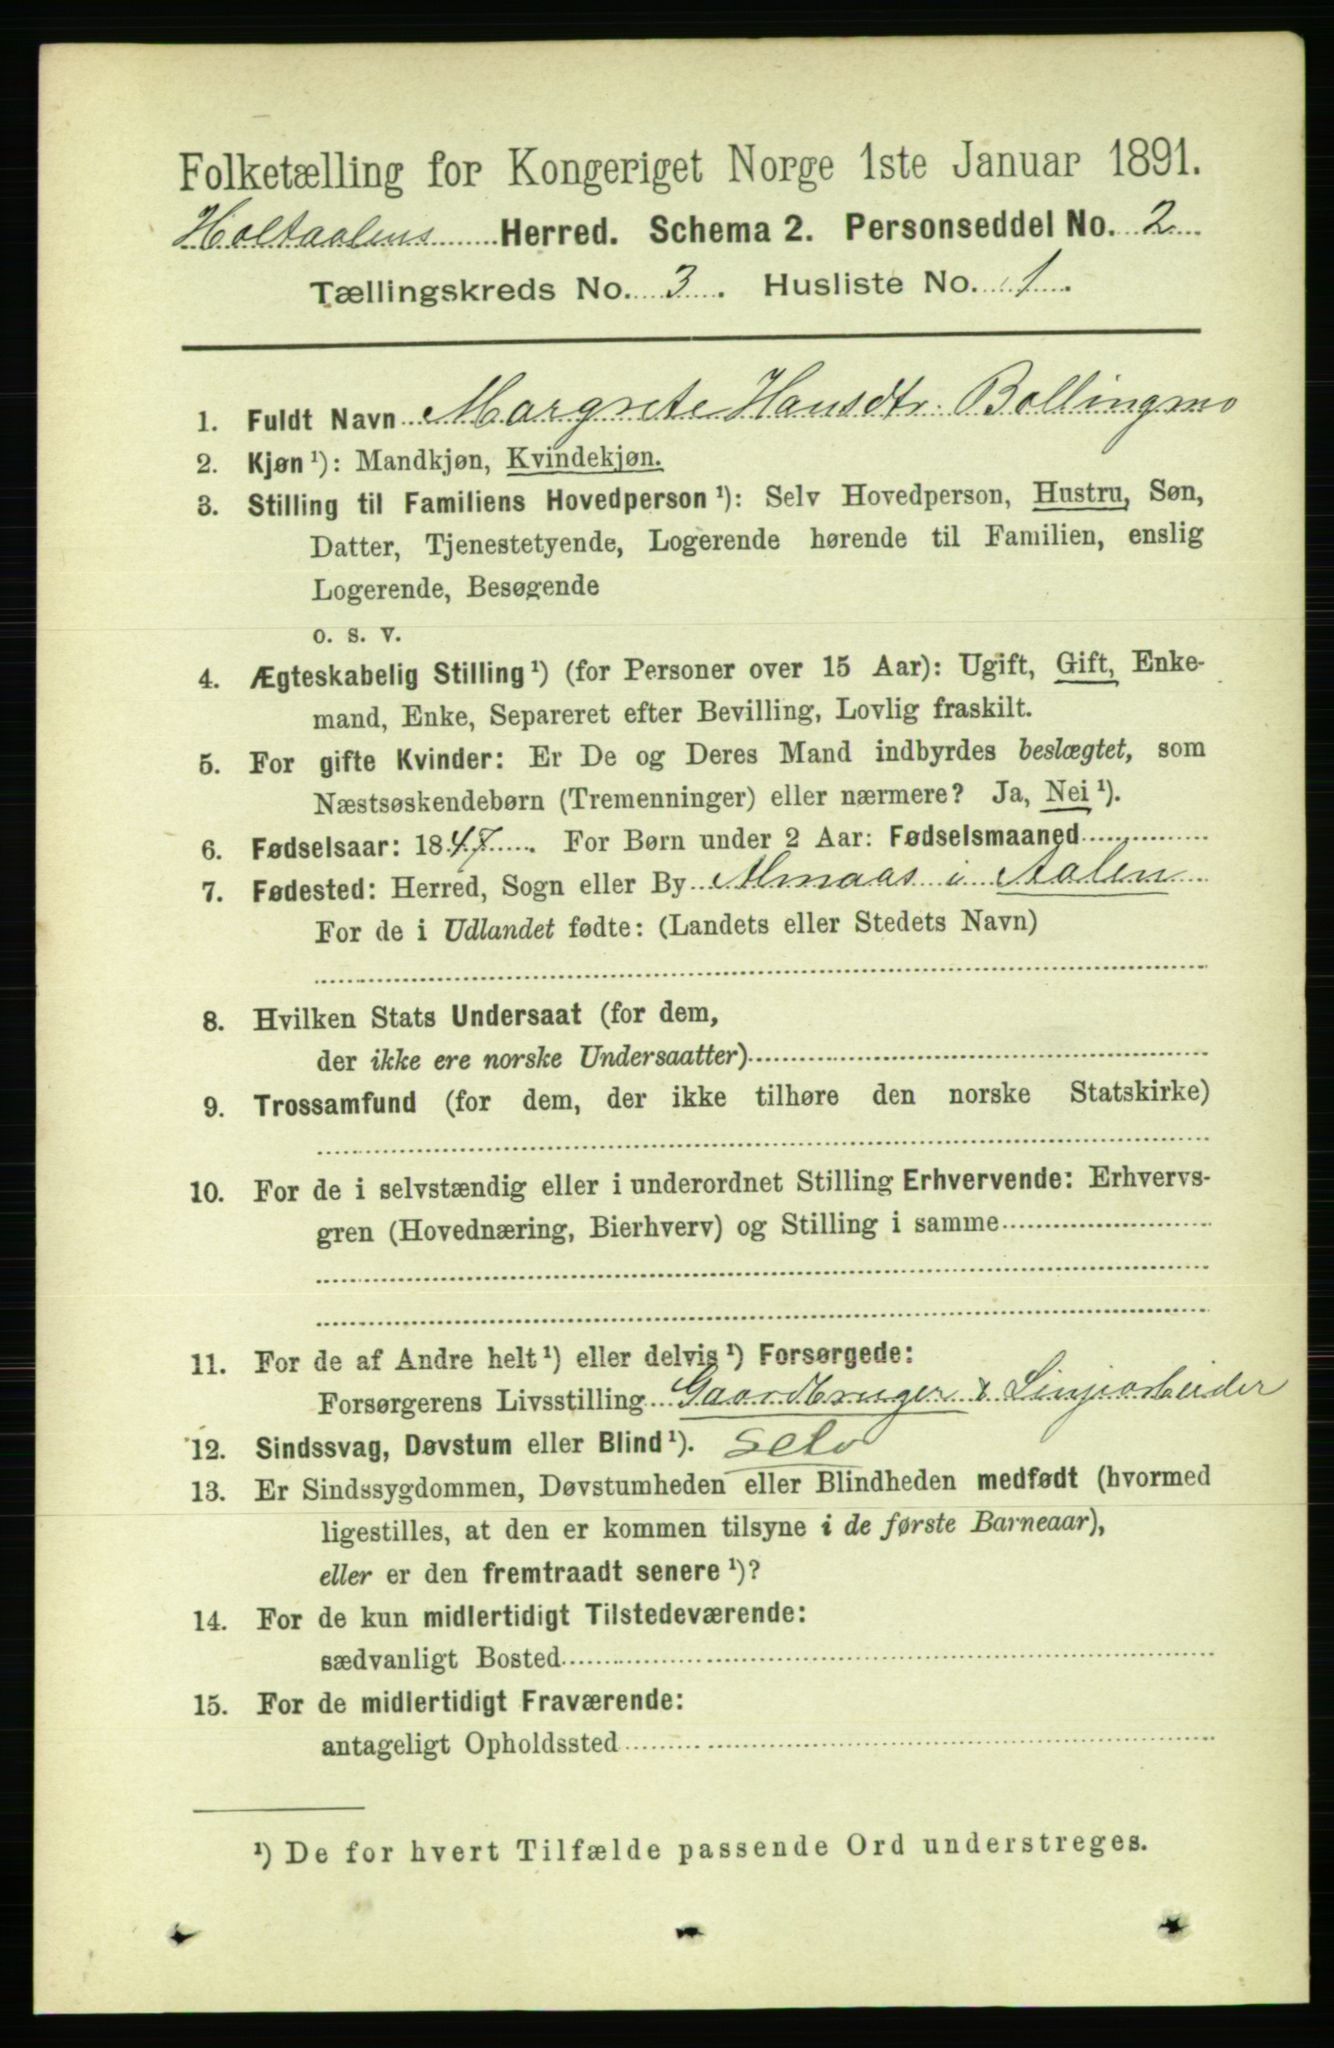 Folketælling for Kongeriget Norge 1ste Januar 1891.
Holtaalens Herred. Schema 2. Personseddel No. 2
Tællingskreds No. 3. Husliste No. 1.
1. Fuldt Navn Margrete Hansdtr. Bollingmo
2. Kjøn¹): Mandkjøn, Kvindekjøn.
3. Stilling til Familiens Hovedperson¹): Selv Hovedperson, Hustru, Søn,
Datter, Tjenestetyende, Logerende hørende til Familien, enslig
Logerende, Besøgende
o. s. v.
4. Ægteskabelig Stilling¹) (for Personer over 15 Aar): Ugift, Gift, Enke-
mand, Enke, Separeret efter Bevilling, Lovlig fraskilt.
5. For gifte Kvinder: Er De og Deres Mand indbyrdes beslægtet, som
Næstsøskendebørn (Tremenninger) eller nærmere? Ja, Nei¹).
6. Fødselsaar: 1847. For Børn under 2 Aar: Fødselsmaaned
7. Fødested: Herred, Sogn eller By Almaas i Aalen
For de i Udlandet fødte: (Landets eller Stedets Navn)
8. Hvilken Stats Undersaat (for dem,
der ikke ere norske Undersaatter)
9. Trossamfund (for dem, der ikke tilhøre den norske Statskirke)
10. For de i selvstændig eller i underordnet Stilling Erhvervende: Erhvervs-
gren (Hovednæring, Bierhverv) og Stilling i samme
11. For de af Andre helt¹) eller delvis¹) Forsørgede:
Forsørgerens Livsstilling Gaardbruger & Linjearbeider
12. Sindssvag, Døvstum eller Blind¹). Selv
13. Er Sindssygdommen, Døvstumheden eller Blindheden medfødt (hvormed
ligestilles, at den er kommen tilsyne i de første Barneaar),
eller er den fremtraadt senere¹)?
14. For de kun midlertidigt Tilstedeværende:
sædvanligt Bosted
15. For de midlertidigt Fraværende:
antageligt Opholdssted
¹) De for hvert Tilfælde passende Ord understreges.